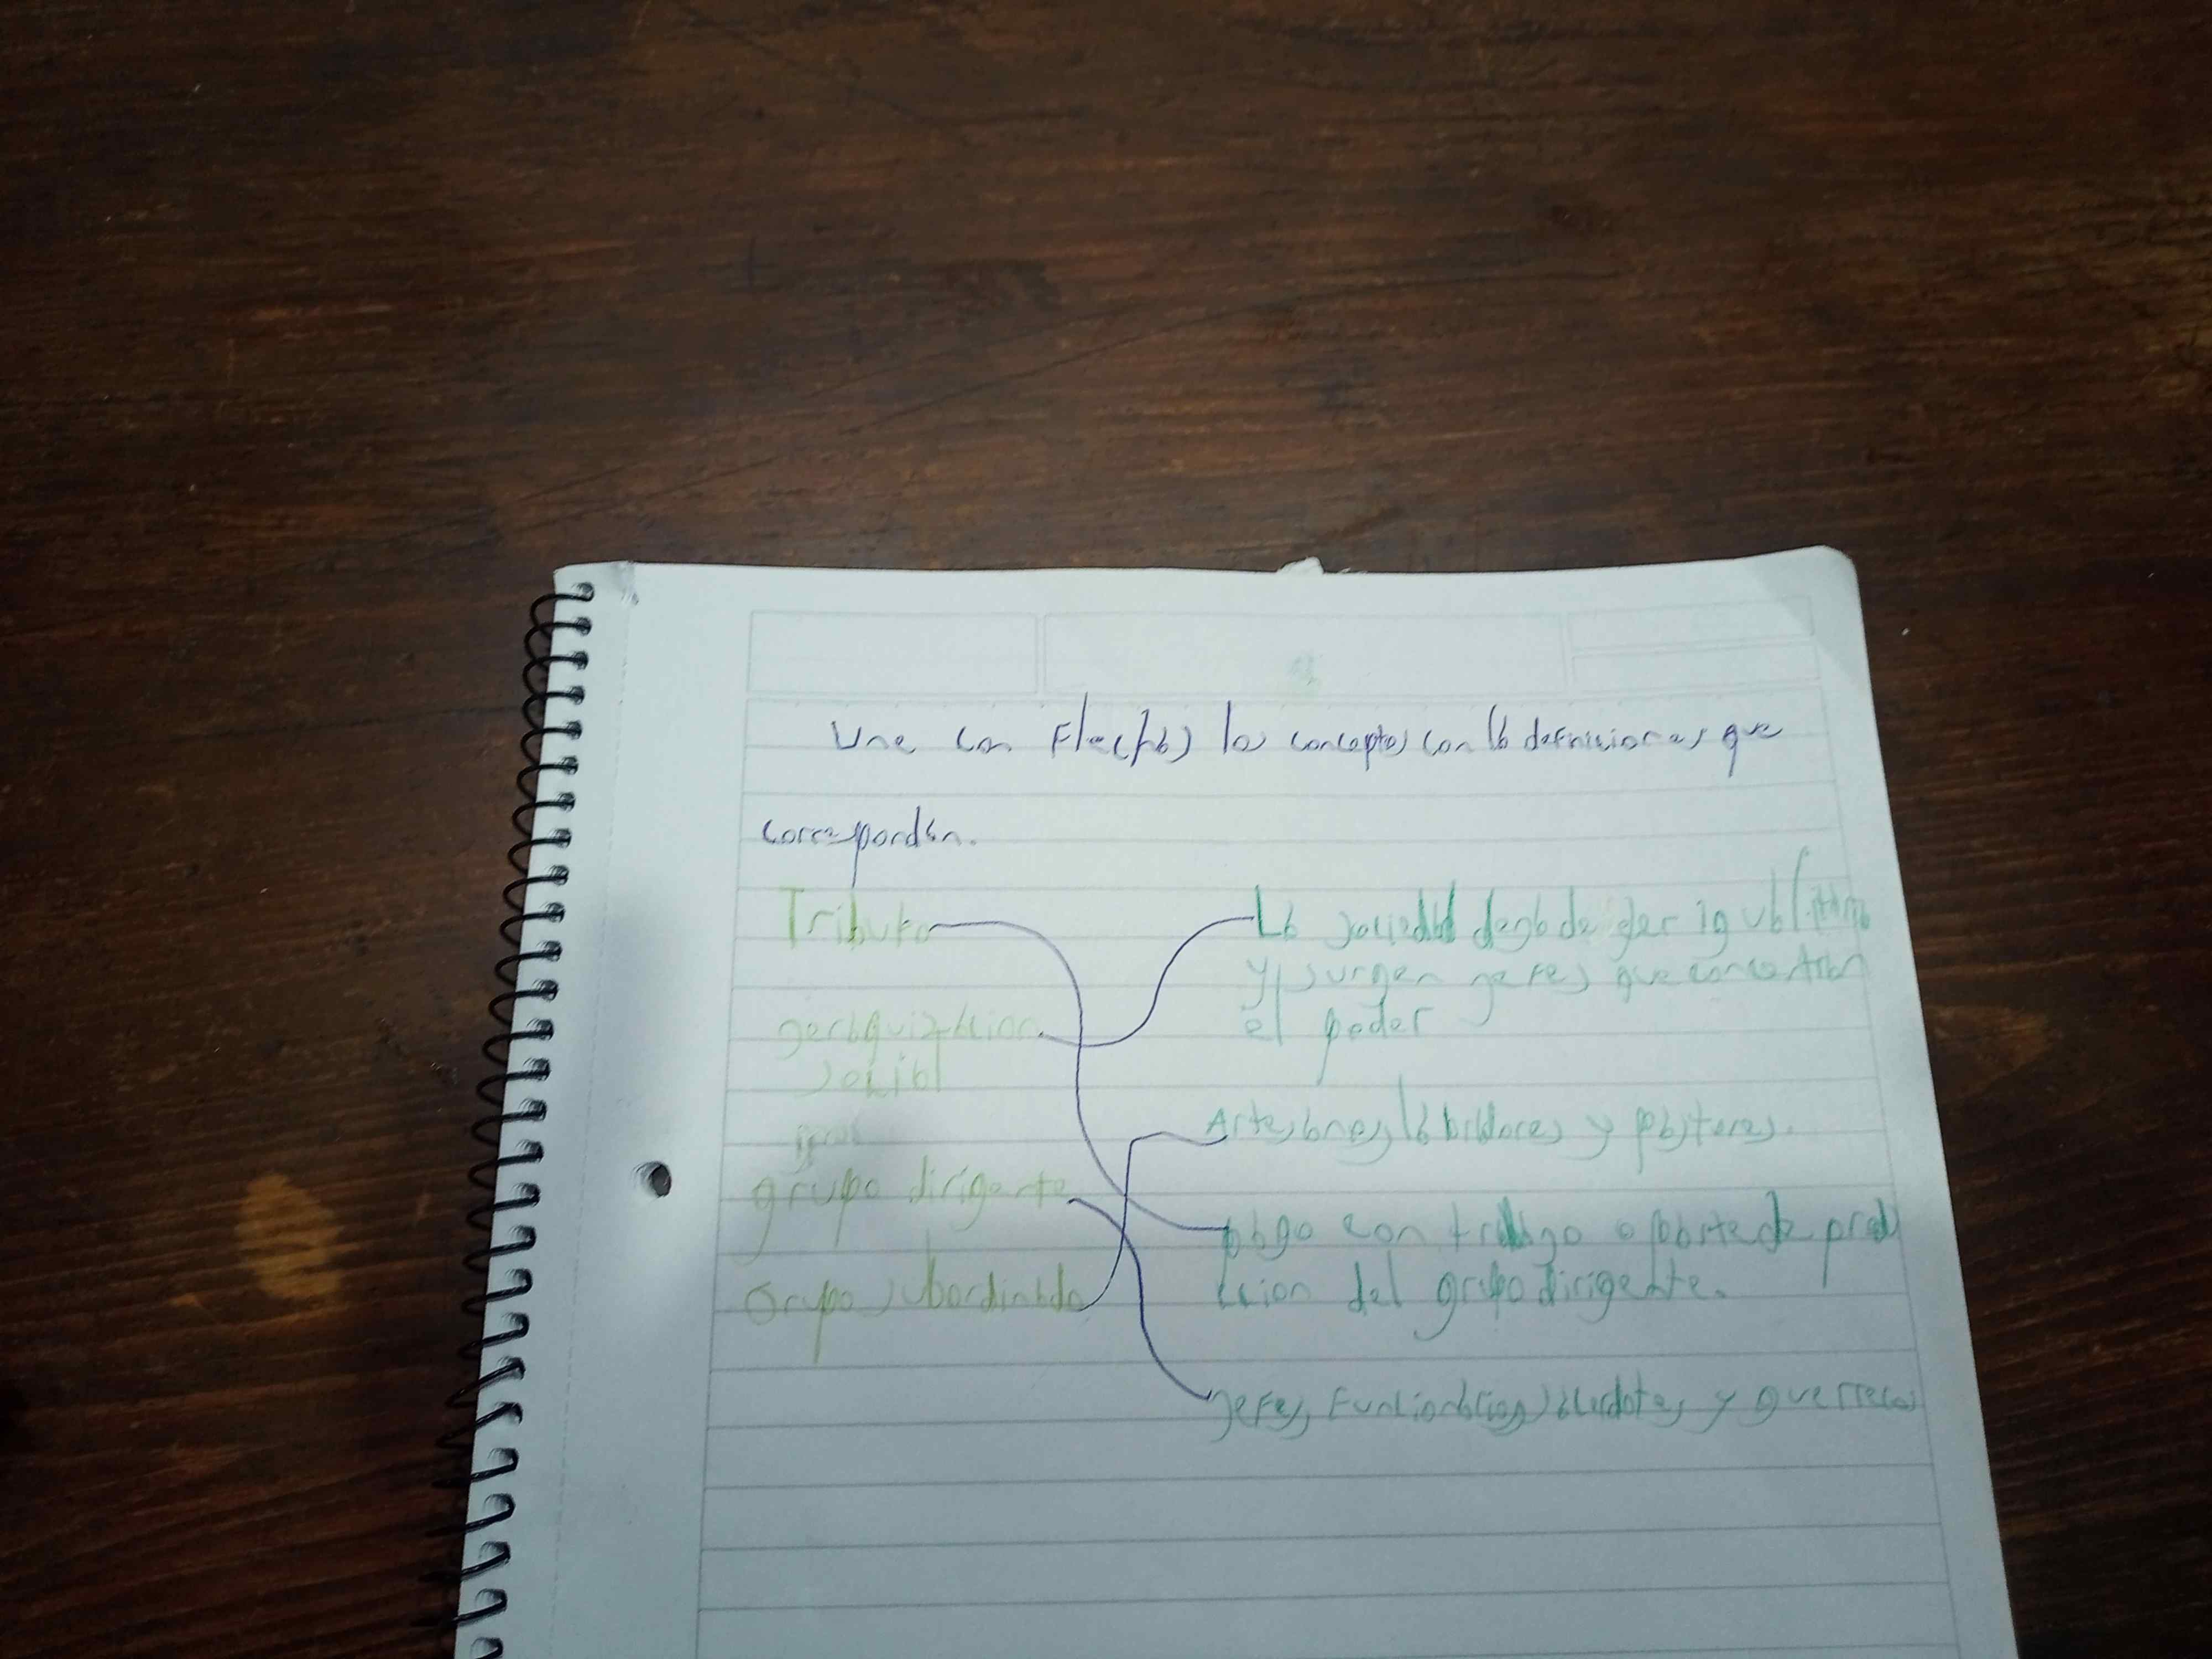 Une con Flechas los conceptos con la definiciones que
correspondan.
Tributo
La sociedad dejade ser igualitaria
y surgen gefes que concentran
gerarquización
el poder
social
Artesanos, labradores y pastores.
grupo dirigente
pago con trabajo o parte de produ
Grupo subordinado
ccion del grupo dirigente.
gefes, Funcionarios, sacerdotes y guerreros